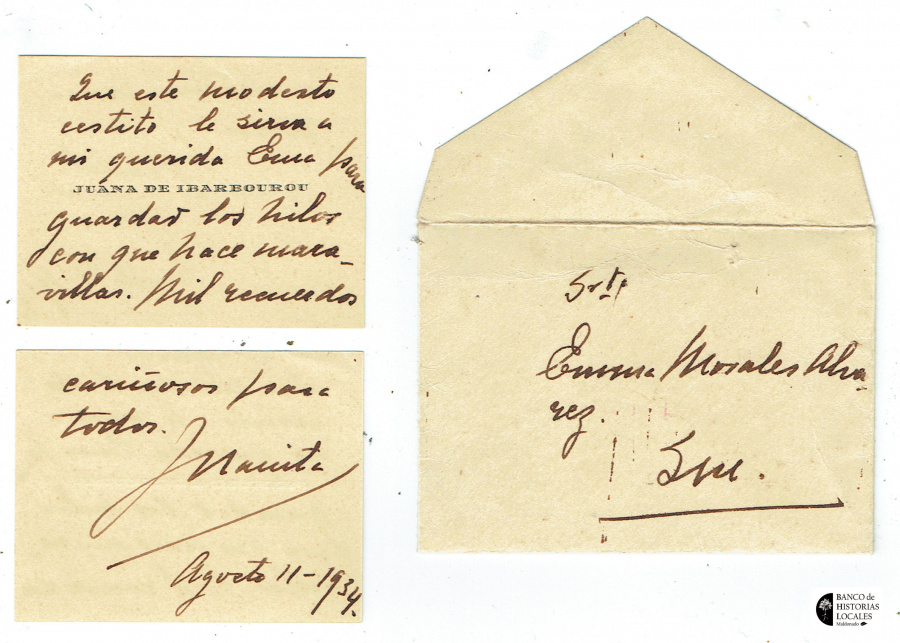 Que este modesto
cestito le sirva a
mi querida Ema para
JUANA DE IBARBOUROU
guardar los hilos
con que hace mara-
villas. Mil recuerdos
cariñosos para
todos.
Juanita
Agosto 11-1934.
Srta
Emma Morales Alva
rez.
S/m.
BANCO de
HISTORIAS
LOCALES
Maldonado